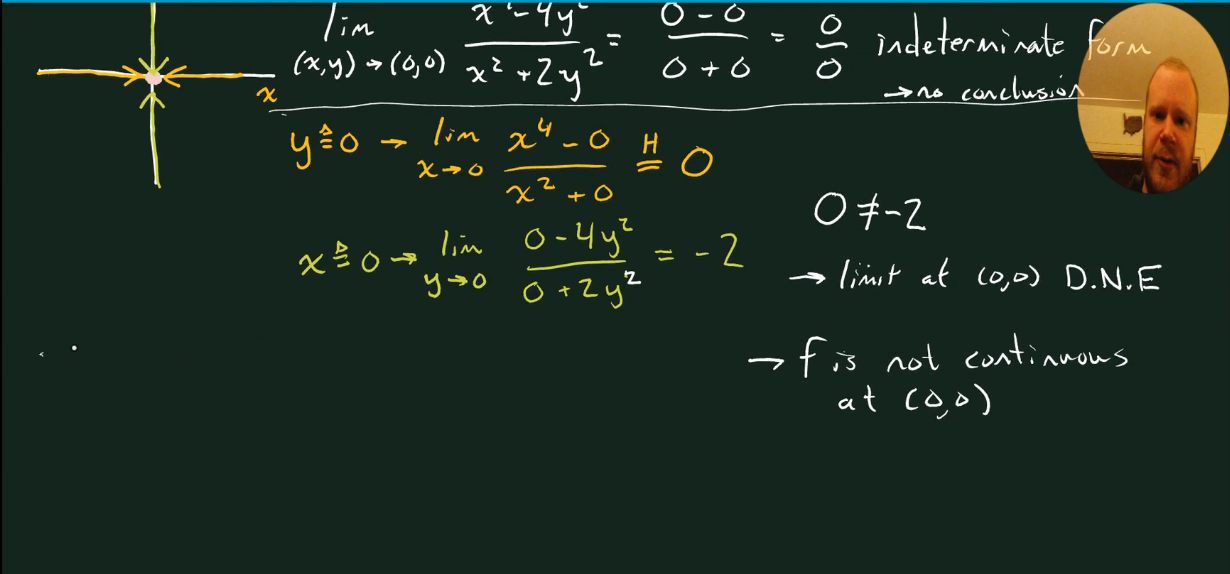 lim x⁴-4y² / x²+2y² = 0-0 / 0+0 = 0/0 indeterminate form
(x,y)→(0,0)
→no conclusion
x
y≜0 → lim x→0 x⁴-0 / x²+0 =ᴴ 0
0≠-2
x≜0→ lim y→0 0-4y² / 0+2y² = -2
→ limit at (0,0) D.N.E
→ f is not continuous
at (0,0)